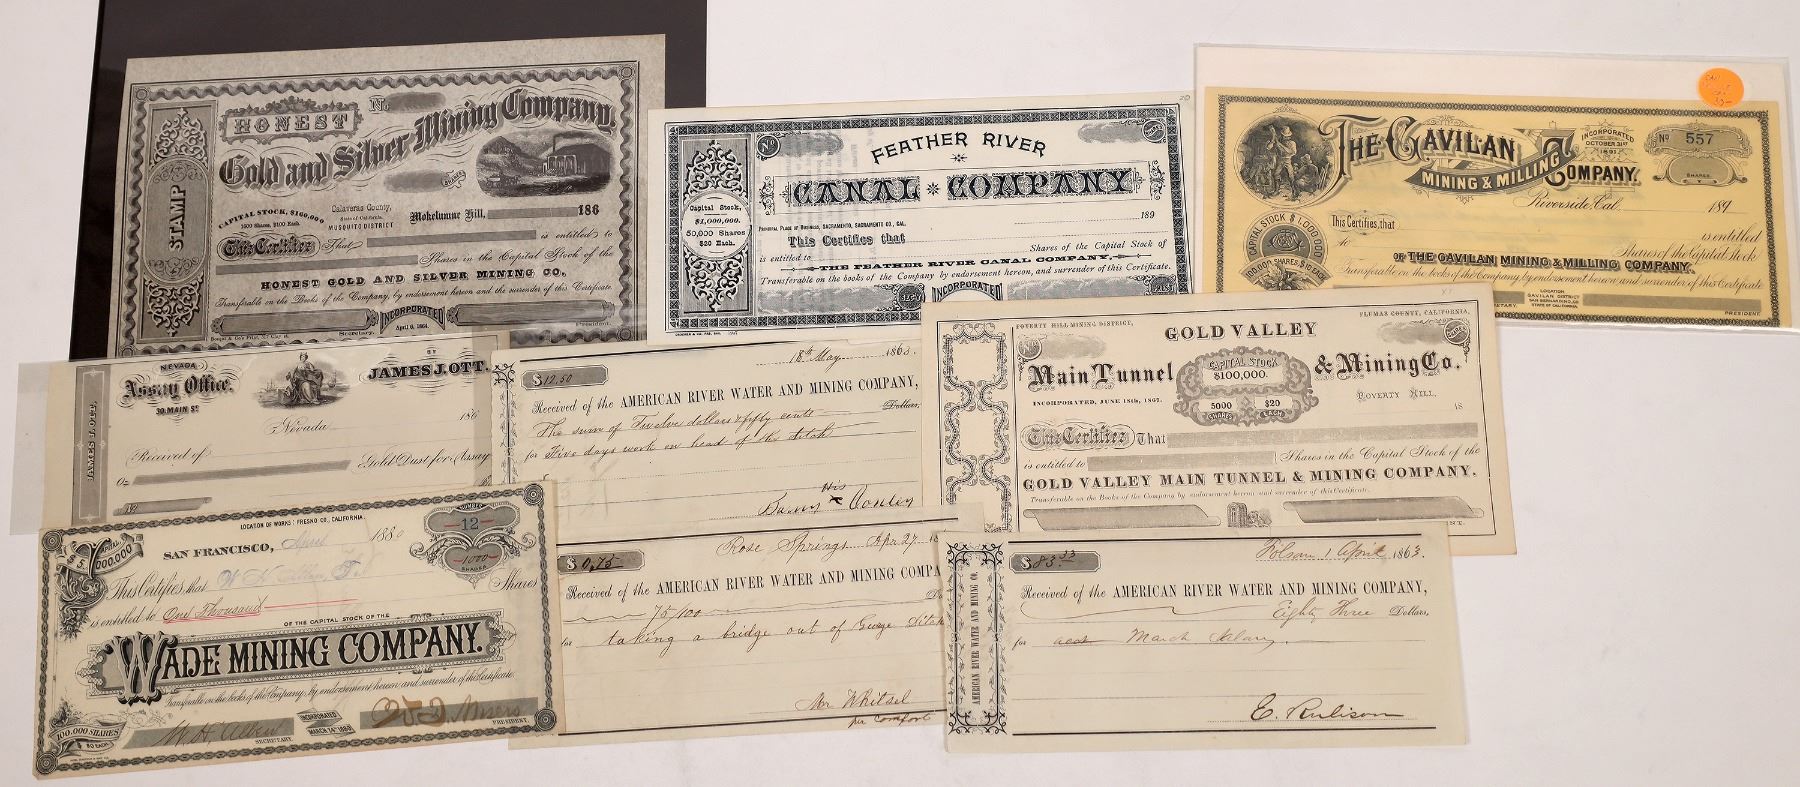 HONEST
No
Gold and Silver Mining Company,
STAMP
SHARES
CAPITAL STOCK, $160.000
1600 Shares, $100 Each.
Calaveras County,
State of California.
MUSQUITO DISTRICT
Mokelumne Hill, 186
This Certifies That
is entitled to
Shares in the Capital Stock of the
HONEST GOLD AND SILVER MINING CO.
Transferable on the Books of the Company, by endorsement hereon and the surrender of this Certificate.
INCORPORATED
April 9, 1864.
Secretary.
President.
No
FEATHER RIVER
CANAL COMPANY
Capital Stock,
$1,000,000.
50,000 Shares
$20 Each.
PRINCIPAL PLACE OF BUSINESS, SACRAMENTO, SACRAMENTO CO., CAL.
189
This Certifies that
is entitled to
Shares of the Capital Stock of
THE FEATHER RIVER CANAL COMPANY,
Transferable on the books of the Company by endorsement hereon, and surrender of this Certificate.
INCORPORATED
SECY
PREST
20
THE GAVILAN
MINING & MILLING
COMPANY.
INCORPORATED
OCTOBER 31ST
1891.
No 557
SHARES
Riverside, Cal. 189
CAPITAL STOCK $1,000,000
100,000 SHARES $10 EACH
This Certifies, that
is entitled
to
Shares of the Capital Stock
OF THE GAVILAN MINING & MILLING COMPANY.
Transferable on the books of the Company by endorsement hereon and surrender of this Certificate
SECRETARY.
LOCATION
GAVILAN DISTRICT
SAN BERNARDINO, CO.
STATE OF CALIFORNIA.
PRESIDENT
NEVADA
Assay Office.
30 MAIN ST.
BY
JAMES J. OTT.
JAMES J. OTT.
Nevada 186
Received of
Gold Dust for Assay
Oz
No
18th May 1863.
$12.50
Received of the AMERICAN RIVER WATER AND MINING COMPANY,
The sum of Twelve dollars & fifty cents Dollars,
for Five days work on head of the Ditch
His
x
Conley
POVERTY HILL MINING DISTRICT,
PLUMAS COUNTY, CALIFORNIA.
No
GOLD VALLEY
Main Tunnel & Mining Co.
CAPITAL STOCK
$100,000.
5000 $20
SHARES EACH
INCORPORATED, JUNE 18th, 1867.
POVERTY HILL, 18
This Certifies That
is entitled to
Shares in the Capital Stock of the
GOLD VALLEY MAIN TUNNEL & MINING COMPANY.
Transferable on the Books of the Company by endorsement hereon and surrender of this Certificate.
LOCATION OF WORKS: FRESNO CO., CALIFORNIA.
NUMBER
12
CAPITAL
$5,000,000
SAN FRANCISCO, April 1880
1000
SHARES
This Certifies that
is entitled to One Thousand Shares
OF THE CAPITAL STOCK OF THE
WADE MINING COMPANY.
Transferable on the books of the Company, by endorsement hereon and surrender of this Certificate.
100.000 SHARES
$50 EACH
SECRETARY.
INCORPORATED
MARCH 24TH 1880
PRESIDENT.
Rose Springs Apr 27 18
$0.75
Received of the AMERICAN RIVER WATER AND MINING COMPA
75/100
for taking a bridge out of George Ditch
Mr Whitsel
per Comfort
AMERICAN RIVER WATER AND MINING CO.
$83.33
Folsom 1 April 1863.
Received of the AMERICAN RIVER WATER AND MINING COMPANY,
Eighty Three Dollars,
for acct March Salary.
E. Rulison